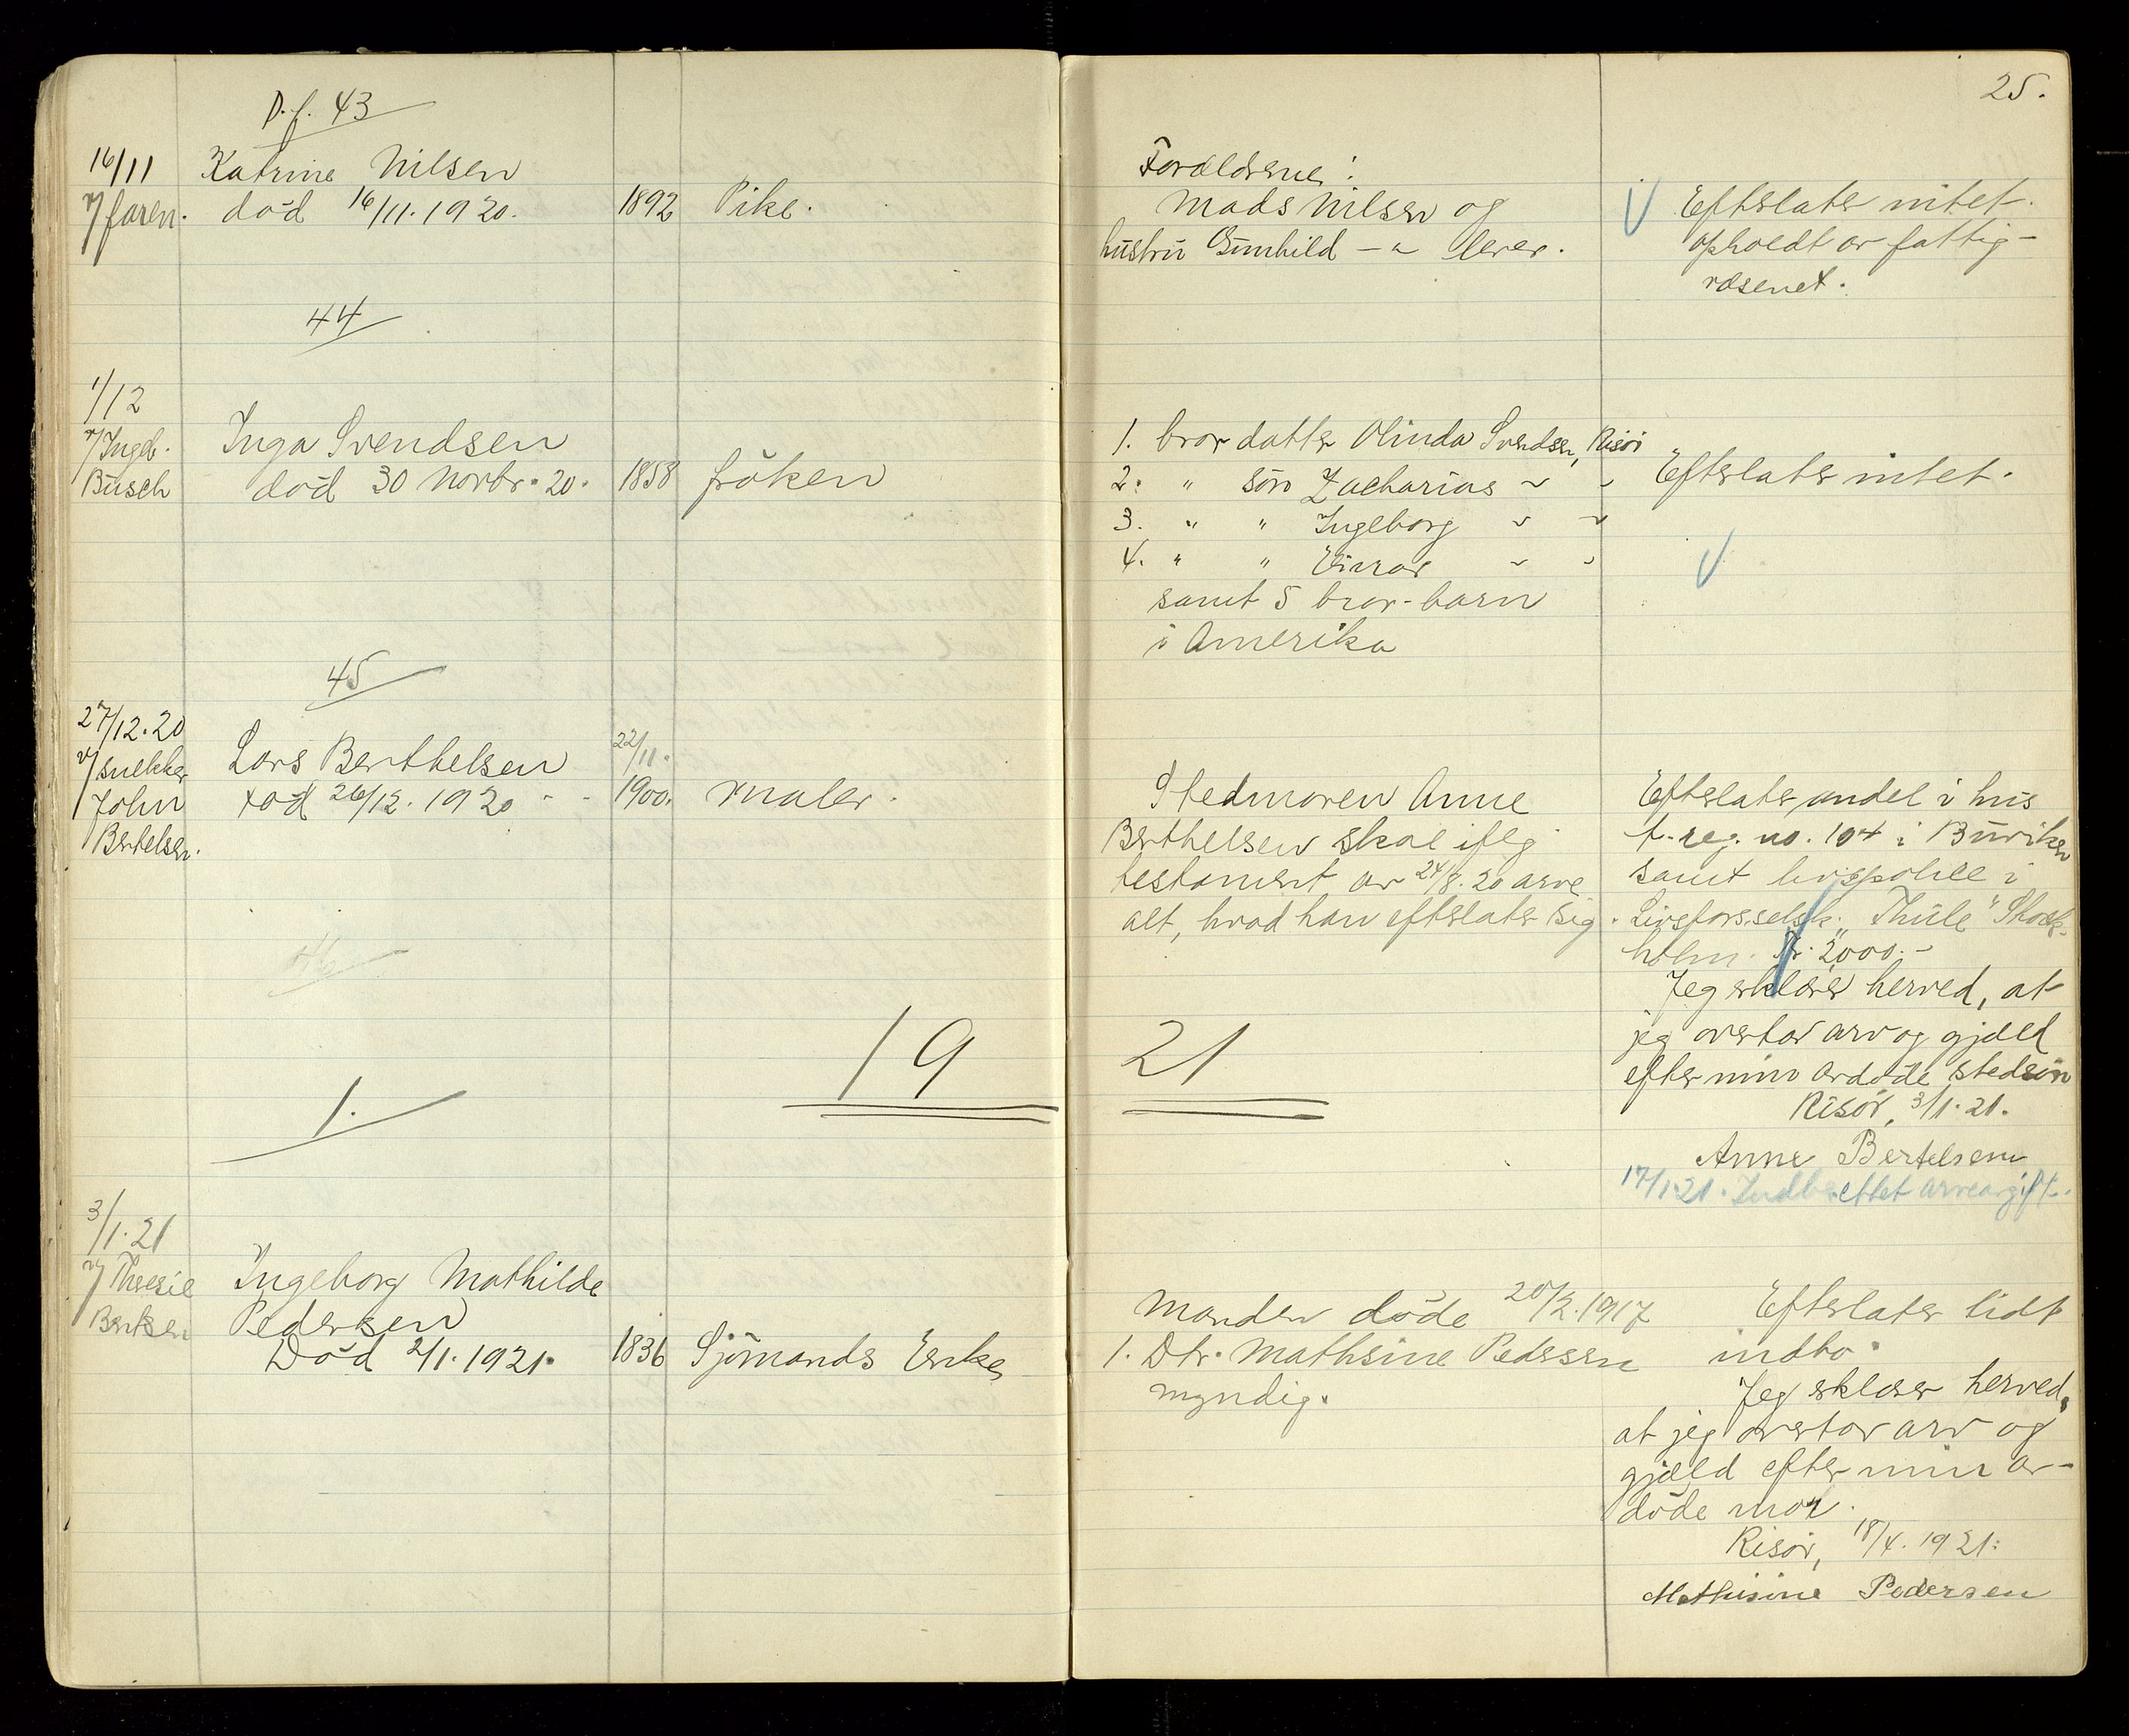 25.
D.f. 43
16/11
v/ faren.
Katrine Nilsen
död 16/11. 1920.
1892
Pike.
Forældrene:
Mads Nilsen og
hustru Gunhild — " lever.
Efterlater intet.
opholdt av fattig-
væsenet.
44
1/12
v/ Ingeb.
Busch
Inga Svendsen
död 30 Novbr. 20.
1858
fröken
1. bror datter Olinda Svendsen, Risör
2. " sön Zacharias " "
3. " " Ingeborg " "
4. " " Einar " "
samt 5 bror-barn
i Amerika
Efterlater intet.
45
27/12. 20
v/ snekker
John
Bertelsen.
Lars Berthelsen
död 26/12. 1920 - -
22/11.
1900.
maler.
Stedmoren Anne
Berthelsen skal iflg
testament av 24/8. 20 arve
alt, hvad han efterlater sig.
Efterlater andel i hus
t. reg. no. 104 i Buviken
samt livspolice i
Livsforsselsk. "Thule" Stock-
holm. Kr. 2000.-
Jeg erklærer herved, at
jeg overtar arv og gjæld
efter min avdöde stedsön
Risör, 3/1. 21.
Anne Bertelsen
17/1. 21. Indberettet arveavgift.
46
19
21
1.
3/1. 21
v/ Theresie
Bentsen
Ingeborg Mathilde
Pedersen
Död 2/1. 1921.
1836
Sjömands Enke
Manden döde 20/2. 1917
1. Dtr. Mathsine Pedersen
myndig.
Efterlater lidt
indbo.
Jeg erklærer herved,
at jeg overtar arv og
gjæld efter min av-
döde mor.
Risör, 18/4. 1921.
Mathisine Pedersen